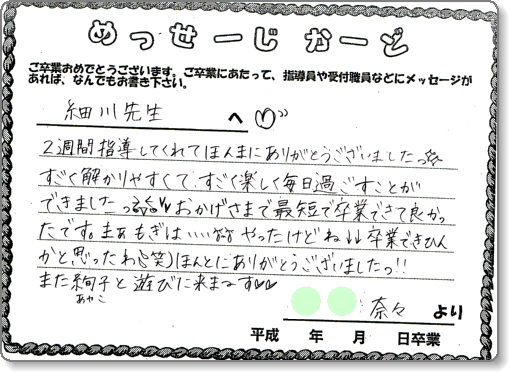 めっせーじかーど
ご卒業おめでとうございます。ご卒業にあたって、指導員や受付職員などにメッセージが
あれば、なんでもお書き下さい。
細川先生 へ
2週間指導してくれてほんまにありがとうございましたっ
すごく解かりやすくて、すごく楽しく毎日過ごすことが
できましたっ おかげさまで最短で卒業できて良かっ
たです。まぁもぎは…… やったけどね↓↓卒業できひん
かと思ったわ(笑)ほんとにありがとうございましたっ!!
また絢子と遊びに来まーす♡♡
あやこ
奈々 より
平成 年 月 日卒業